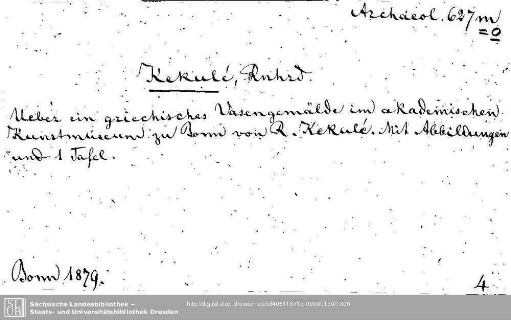 Archaeol. 627 m
= o
Kekulé, Rnhrd
Ueber ein griechisches Vasengemälde im akademischen
Kunstmuseum zu Bonn von R. Kekulé. Mit Abbildungen
und 1 Tafel.
Bonn 1879.
4
SLUB
Sächsische Landesbibliothek –
Staats- und Universitätsbibliothek Dresden